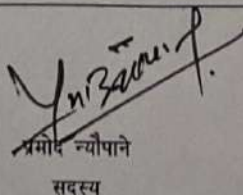 प्रमोद न्यौपाने
सदस्य